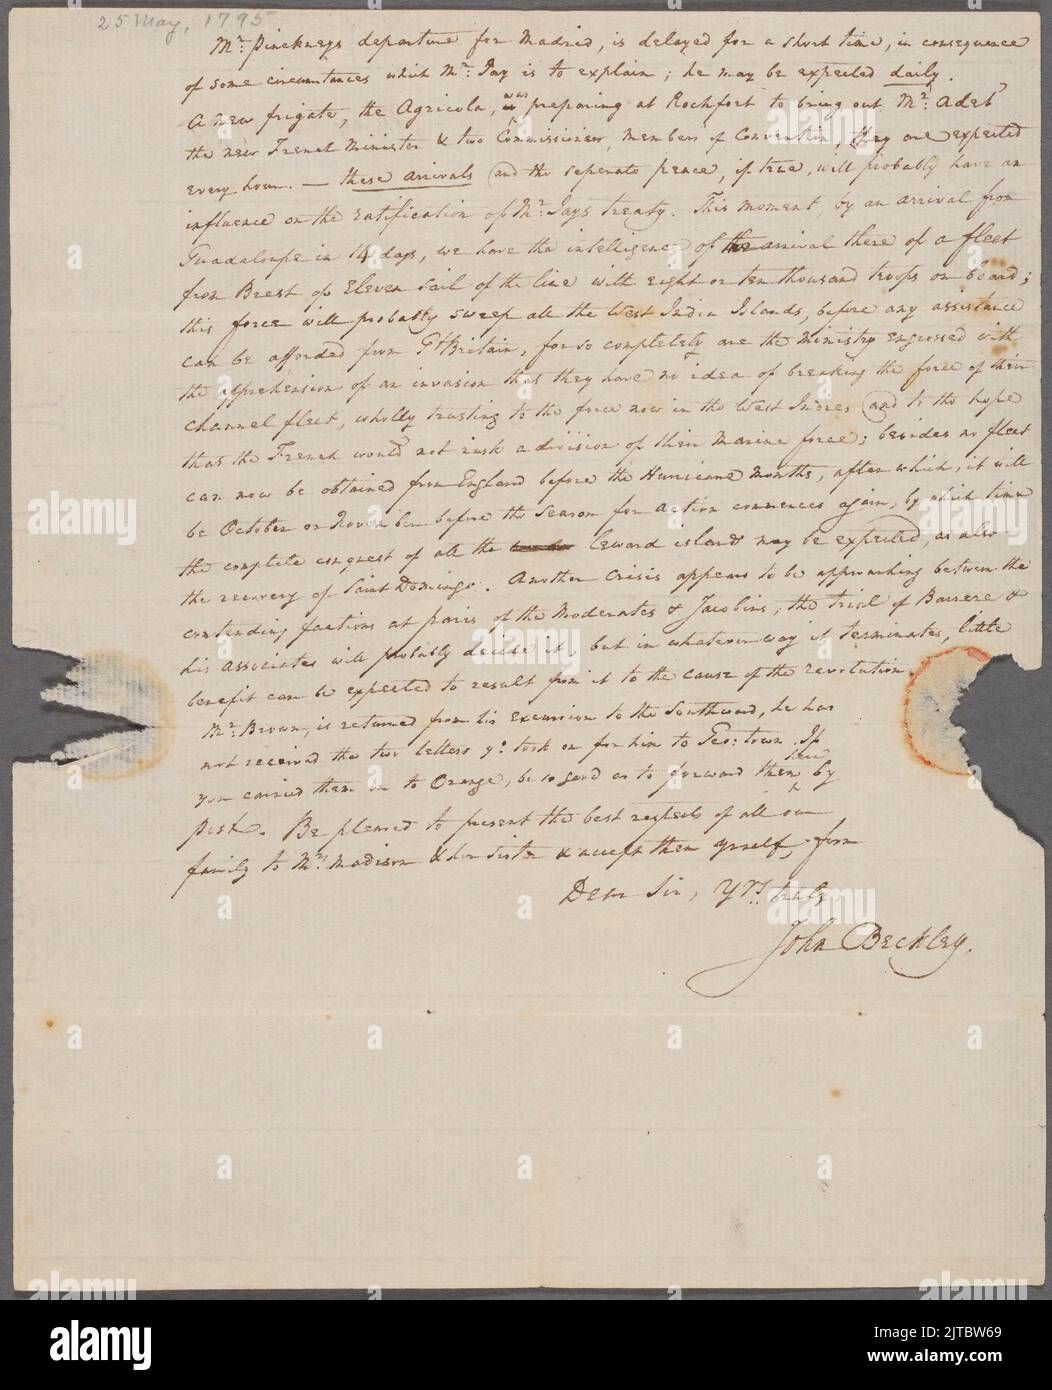 25 May, 1795
Mr. Pinckneys departure for Madrid, is delayed for a short time, in consequence
of some circumstances which Mr. Jay is to explain; he may be expected daily.
A new frigate, the Agricola, was preparing at Rochfort to bring out Mr. Adet
the new French Minister & two Commissioners, members of Convention, they are expected
every hour. — these arrivals and the seperate peace, if true, will probably have an
influence on the ratification of Mr. Jays treaty. This moment, by an arrival from
Guadaloupe in 14 days, we have the intelligence of the arrival there of a fleet
from Brest of Eleven Sail of the line with eight or ten thousand troops on board;
this force will probably sweep all the West India Islands, before any assistance
can be afforded from Gt Britain, for so completely are the ministry engrossed with
the apprehension of an invasion that they have no idea of breaking the force of their
channel fleet, wholly trusting to the force now in the West Indies and to the hope
that the French would not risk a division of their Marine force; besides no fleet
can now be obtained from England before the Hurricane months, after which, it will
be October or November before the Season for action commences again, by which time
the complete conquest of all the Leward islands may be expected, as also
the recovery of Saint Domingo. Another Crisis appears to be approaching between the
contending factions at paris of the Moderates & Jacobins, the trial of Barrere &
his associates will probably decide it, but in whatever way it terminates, little
benefit can be expected to result from it to the cause of the revolution.
Mr. Brown, is returned from his excursion to the Southward, he has
not received the two letters yo: took on for him to Geo: town. If
you carried them on to Orange, be so good as to forward them here by
post. Be pleased to present the best respects of all our
family to Mrs. Madison & her sister & accept them yrself, from
Dear Sir, Yrs. truly
John Beckley.
alamy
Image ID: 2JTBW69
www.alamy.com